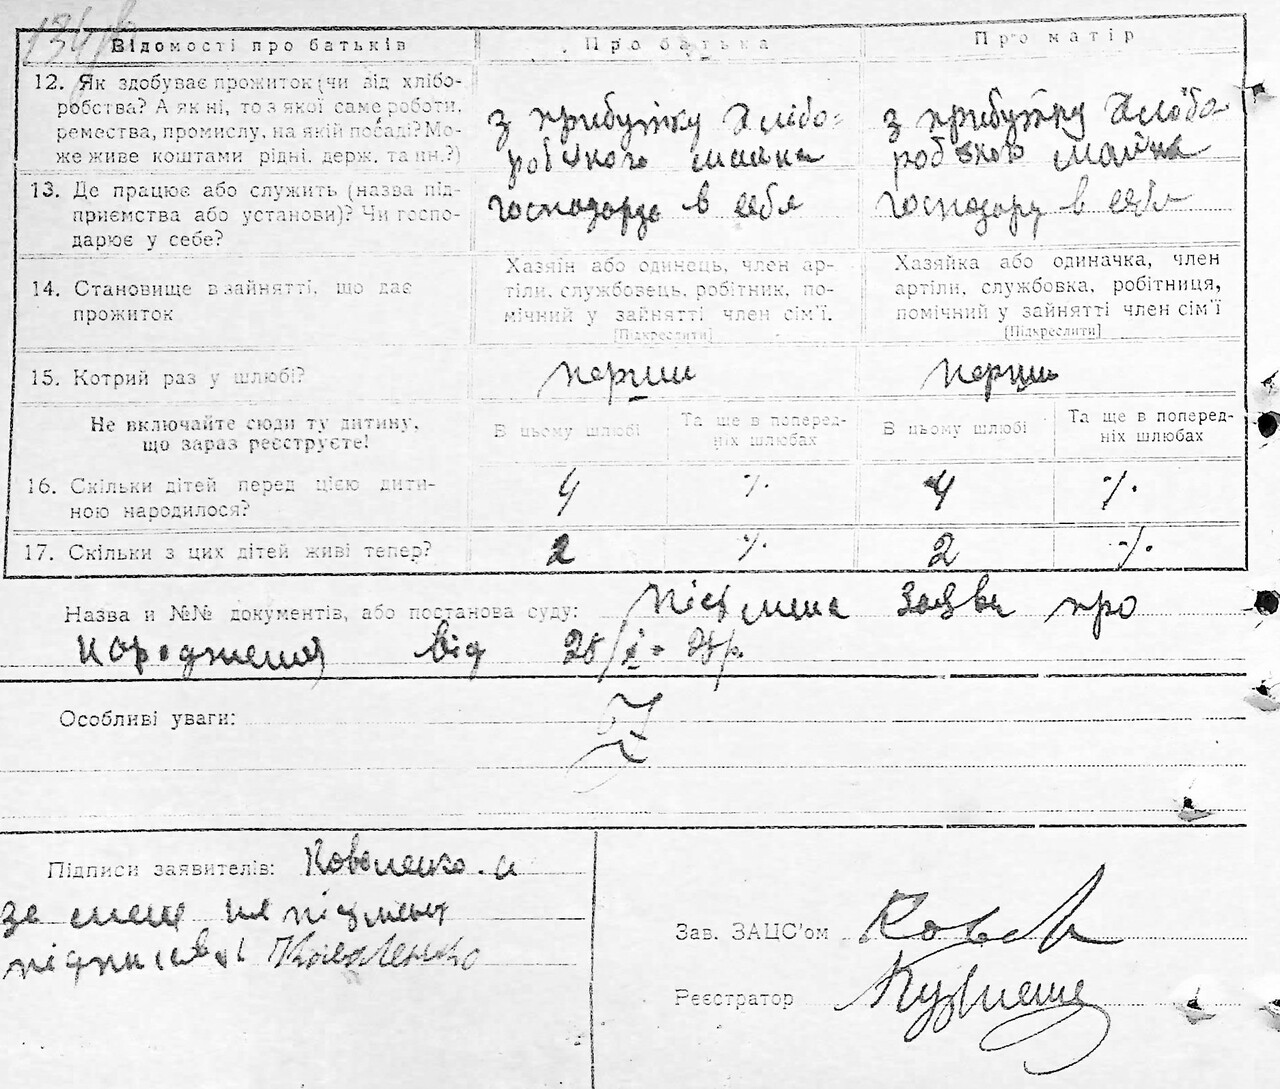 134
Відомості про батьків Про батька Про матір
12. Як здобуває прожиток (чи від хлібо-
робства? А як ні, то з якої саме роботи,
ремества, промислу, на якій посаді? Мо-
же живе коштами рідні, держ. та ин.?)
з прибутку Хлібо-
робського майна
з прибутку Хлібо
робського майна
13. Де працює або служить (назва під-
приємства або установи)? Чи госпо-
дарює у себе?
господарює в себе
господарює в себе
14. Становище в зайнятті, що дає
прожиток
Хазяїн або одинець, член ар-
тіли, службовець, робітник, по-
мічний у зайнятті член сім'ї.
[Підкреслити]
Хазяйка або одиначка, член
артіли, службовка, робітниця,
помічний у зайнятті член сім'ї
[Підкреслити]
15. Котрий раз у шлюбі? перший перший
Не включайте сюди ту дитину,
що зараз реєструєте!
В цьому шлюбі
Та ще в поперед-
ніх шлюбах
В цьому шлюбі
Та ще в поперед-
ніх шлюбах
16. Скільки дітей перед цією дити-
ною народилося?
4 ٪ 4 ٪
17. Скільки з цих дітей живі тепер? 2 ٪ 2 ٪
Назва и №№ документів, або постанова суду: Письмена Заява про
народження від
Особливі уваги:
Підписи заявителів: Коваленко
за мене не письмен
підписався Коваленко
Зав. ЗАЦС'ом
Реєстратор